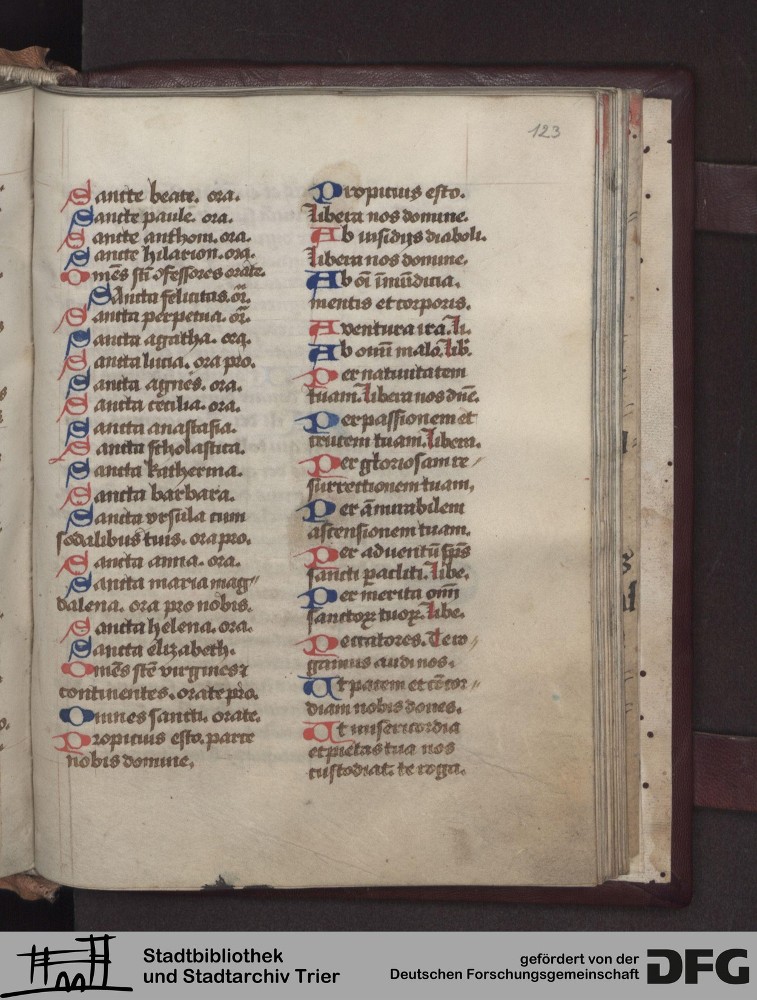 123
Sancte beate. ora.
Sancte paule. ora.
Sancte anthoni. ora.
Sancte hilarion. ora.
Om̄es sc̄i ꝯfessores orate.
SAncta felicitas. or̄.
Sancta perpetua. or̄.
Sancta agatha. ora.
Sancta lucia. ora pro.
Sancta agnes. ora.
Sancta cecilia. ora.
Sancta anastasia.
Sancta scholastica.
Sancta katherina.
Sancta barbara.
Sancta vrsula cum
sodalibus tuis. ora pro.
Sancta anna. ora.
Sancta maria mag〃
dalena. ora pro nobis.
Sancta helena. ora.
Sancta elizabeth.
Om̄es sc̄e virgines ⁊
continentes. orate pro.
Omnes sancti. orate.
Propicius esto. parce
nobis domine,
Propicius esto.
Libera nos domine.
Ab insidijs diaboli.
Libera nos domine.
Ab oī īmūdicia.
mentis et corporis.
A ventura ira. Li.
Ab omni malo. Lib̄.
Per natiuitatem
tuam. Libera nos dn̄e.
Per passionem et
crucem tuam. Libera.
Per gloriosam re〃
surrectionem tuam,
Per āmirabilem
ascensionem tuam.
Per aduentū sp̄s
sancti pacliti. Libe.
Per merita om̄
sanctoꝝ tuoꝝ. Libe.
Peccatores. Te ro〃
gamus audi nos.
Ut pacem et cōcor〃
diam nobis dones.
Ut misericordia
et pietas tua nos
custodiat. te roga.
Stadtbibliothek
und Stadtarchiv Trier
gefördert von der
Deutschen Forschungsgemeinschaft
DFG